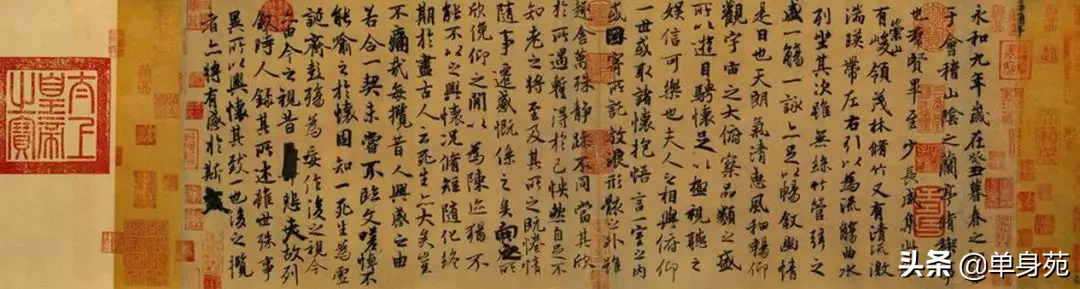 永和九年歲在癸丑暮春之
于會稽山陰之蘭亭脩稧事
也群賢畢至少長咸集此
有崇山峻領茂林脩竹又有清流激
湍暎帶左右引以為流觴曲水
列坐其次雖無絲竹管弦之
盛一觴一詠亦足以暢敘幽情
是日也天朗氣清惠風和暢仰
觀宇宙之大俯察品類之盛
所以遊目騁懷足以極視聽之
娛信可樂也夫人之相與俯仰
一世或取諸懷抱悟言一室之內
或因寄所託放浪形骸之外雖
趣舍萬殊靜躁不同當其欣
於所遇蹔得於己怏然自足不
知老之將至及其所之既惓情
隨事遷感慨係之矣向之所
欣俛仰之閒以為陳迹猶不
能不以之興懷況脩短隨化終
期於盡古人云死生亦大矣豈
不痛哉每攬昔人興感之由
若合一契未嘗不臨文嗟悼不
能喻之於懷固知一死生為虛
誕齊彭殤為妄作後之視今
亦由今之視昔悲夫故列
敘時人錄其所述雖世殊事
異所以興懷其致一也後之攬
者亦將有感於斯文
太上皇帝之寶
头条 @单身苑